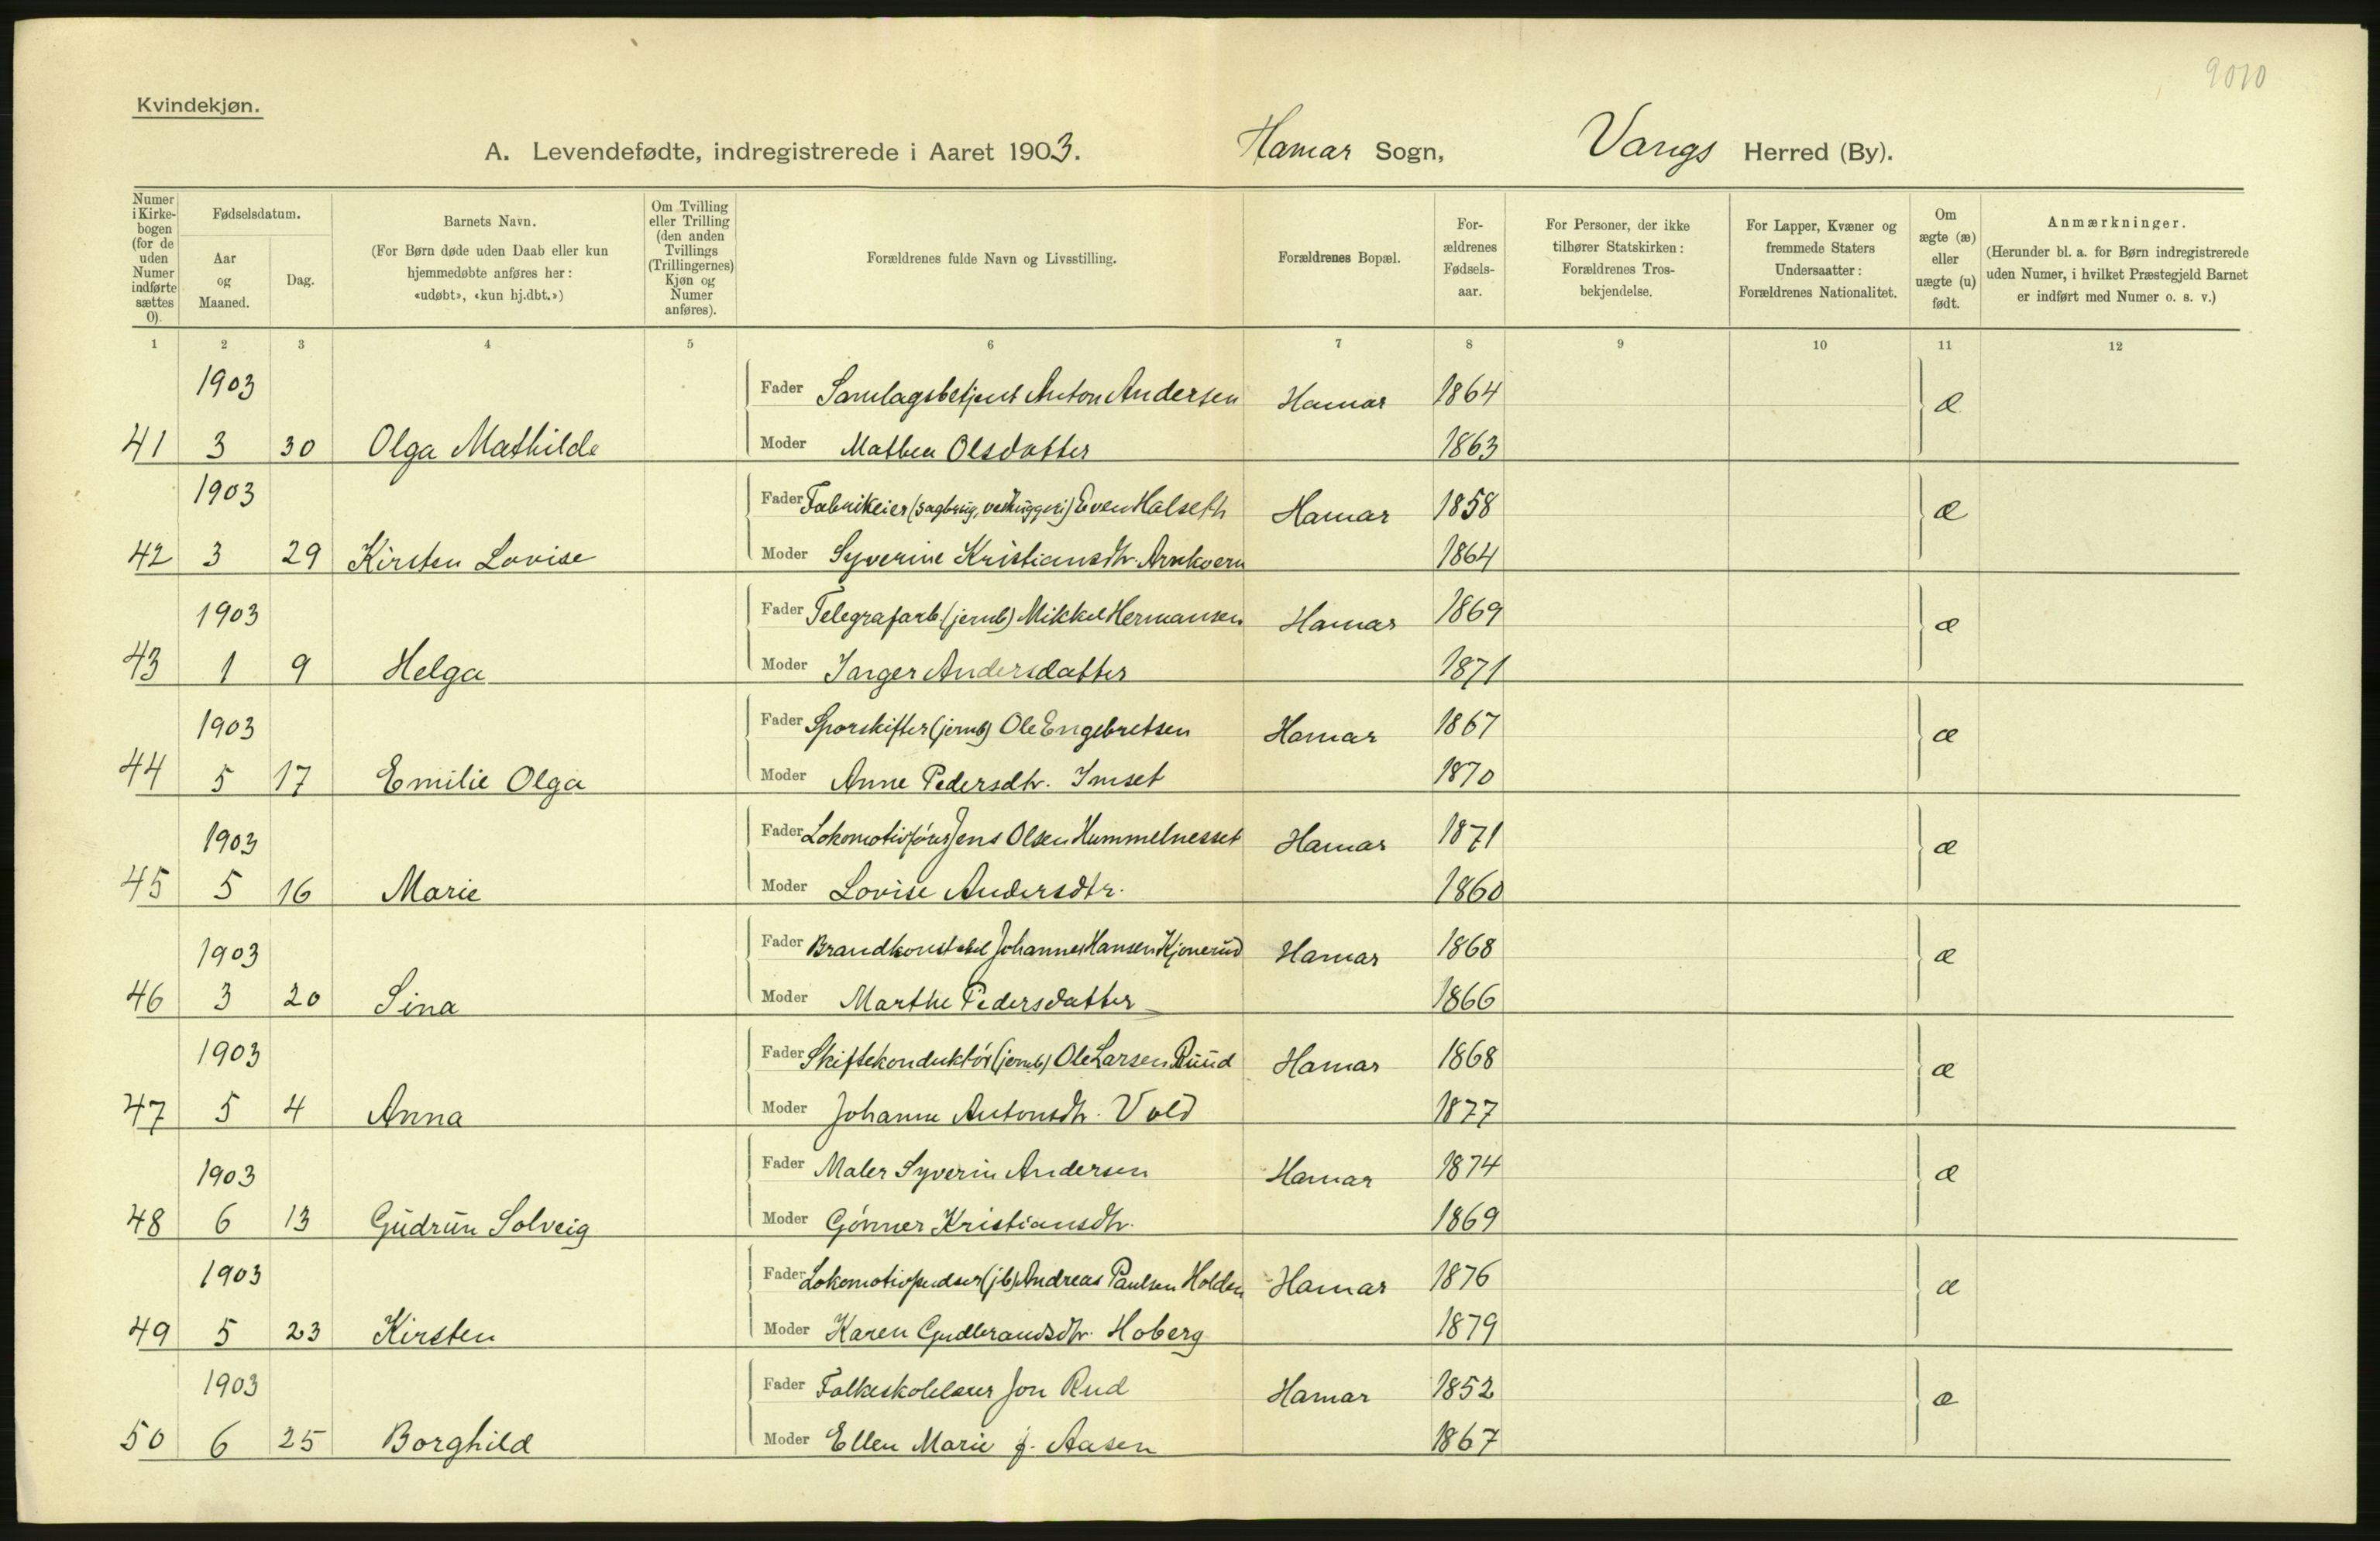 9010
Kvindekjøn.
A. Levendefødte, indregistrerede i Aaret 1903. Hamar Sogn, Vangs Herred (By).
Numer i Kirke-bogen (for de uden Numer indførte sættes 0).
Fødselsdatum.
Aar og Maaned.
Dag.
Barnets Navn.
(For Børn døde uden Daab eller kun
hjemmedøbte anføres her:
«udøbt», «kun hj.dbt.»)
Om Tvilling
eller Trilling
(den anden
Tvillings
(Trillingernes)
Kjøn og
Numer
anføres).
Forældrenes fulde Navn og Livsstilling.
Forældrenes Bopæl.
For-
ældrenes
Fødsels-
aar.
For Personer, der ikke
tilhører Statskirken:
Forældrenes Tros-
bekjendelse.
For Lapper, Kvæner og
fremmede Staters
Undersaatter:
Forældrenes Nationalitet.
Om
ægte (æ)
eller
uægte (u)
født.
Anmærkninger.
(Herunder bl. a. for Børn indregistrerede
uden Numer, i hvilket Præstegjeld Barnet
er indført med Numer o. s. v.)
1 2 3 4 5 6 7 8 9 10 11 12
1903 Fader Samlagsbetjent Anton Andersen Hamar 1864 æ
41 3 30 Olga Mathilde Moder Mathea Olsdatter 1863
1903 Fader Fabrikeier (sagbrug, Even Halseth Hamar 1858 æ
42 3 29 Kirsten Lovise Moder Syverine Kristiansdtr. Arnkværn 1864
1903 Fader Telegrafarb. (jernb) Mikkel Hermansen Hamar 1869 æ
43 1 9 Helga Moder Inger Andersdatter 1871
1903 Fader Sporskifter (jernb) Ole Engebretsen Hamar 1867 æ
44 5 17 Emilie Olga Moder Anne Pedersdtr. Imset 1870
1903 Fader Lokomotivfører Jens Olsen Hummelnesset Hamar 1871 æ
45 5 16 Marie Moder Lovise Andersdtr. 1860
1903 Fader Brandkonstabel Johannes Hansen Kjonerud Hamar 1868 æ
46 3 20 Sina Moder Marthe Pedersdatter 1866
1903 Fader Skiftekonduktør (jernb) Ole Larsen Ruud Hamar 1868 æ
47 5 4 Anna Moder Johanne Antonsdtr. Vold 1877
1903 Fader Maler Syverin Andersen Hamar 1874 æ
48 6 13 Gudrun Solveig Moder Gønner Kristiansdtr. 1869
1903 Fader Lokomotivpudser (jb) Andreas Paulsen Holden Hamar 1876 æ
49 5 23 Kirsten Moder Karen Gudbrandsdtr. Hoberg 1879
1903 Fader Folkeskolelærer Jon Rud Hamar 1852 æ
50 6 25 Borghild Moder Ellen Marie f. Aasen 1867